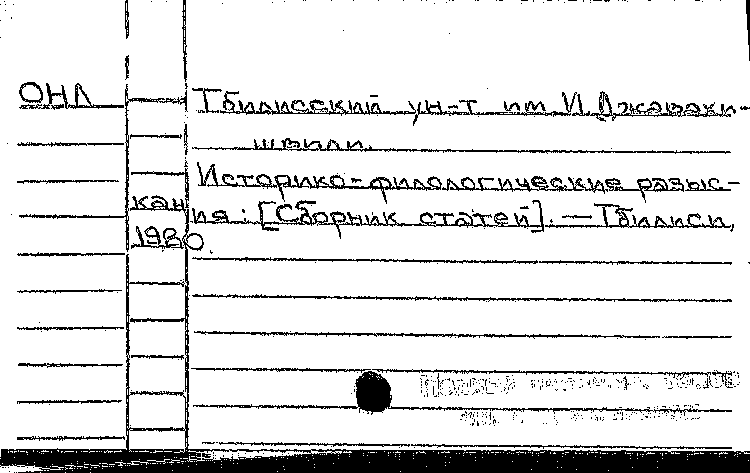 ОНЛ
Тбилисский ун-т им И. Джавахи-
швили.
Историко-филологические разыс-
кания : [Сборник статей]. — Тбилиси,
1980.